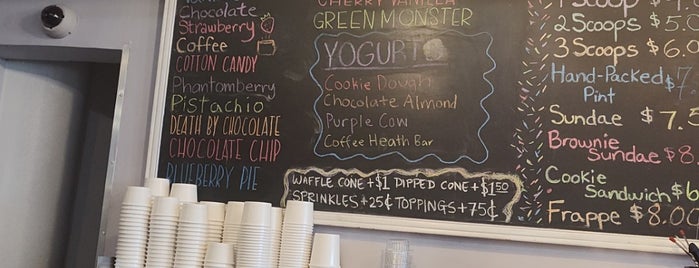 Chocolate
Strawberry
Coffee
COTTON CANDY
Phantomberry
Pistachio
DEATH BY CHOCOLATE
CHOCOLATE CHIP
BLUEBERRY PIE
CHERRY VANILLA
GREEN MONSTER
YOGURT
Cookie Dough
Chocolate Almond
Purple Cow
Coffee Heath Bar
WAFFLE CONE +$1 DIPPED CONE +$1.50
SPRINKLES +25¢ TOPPINGS +75¢
1 Scoop $
2 Scoops $
3 Scoops $6.
Hand-Packed $7
Pint
Sundae $7.5
Brownie
Sundae $8
Cookie
Sandwich $6
Frappe $8.00